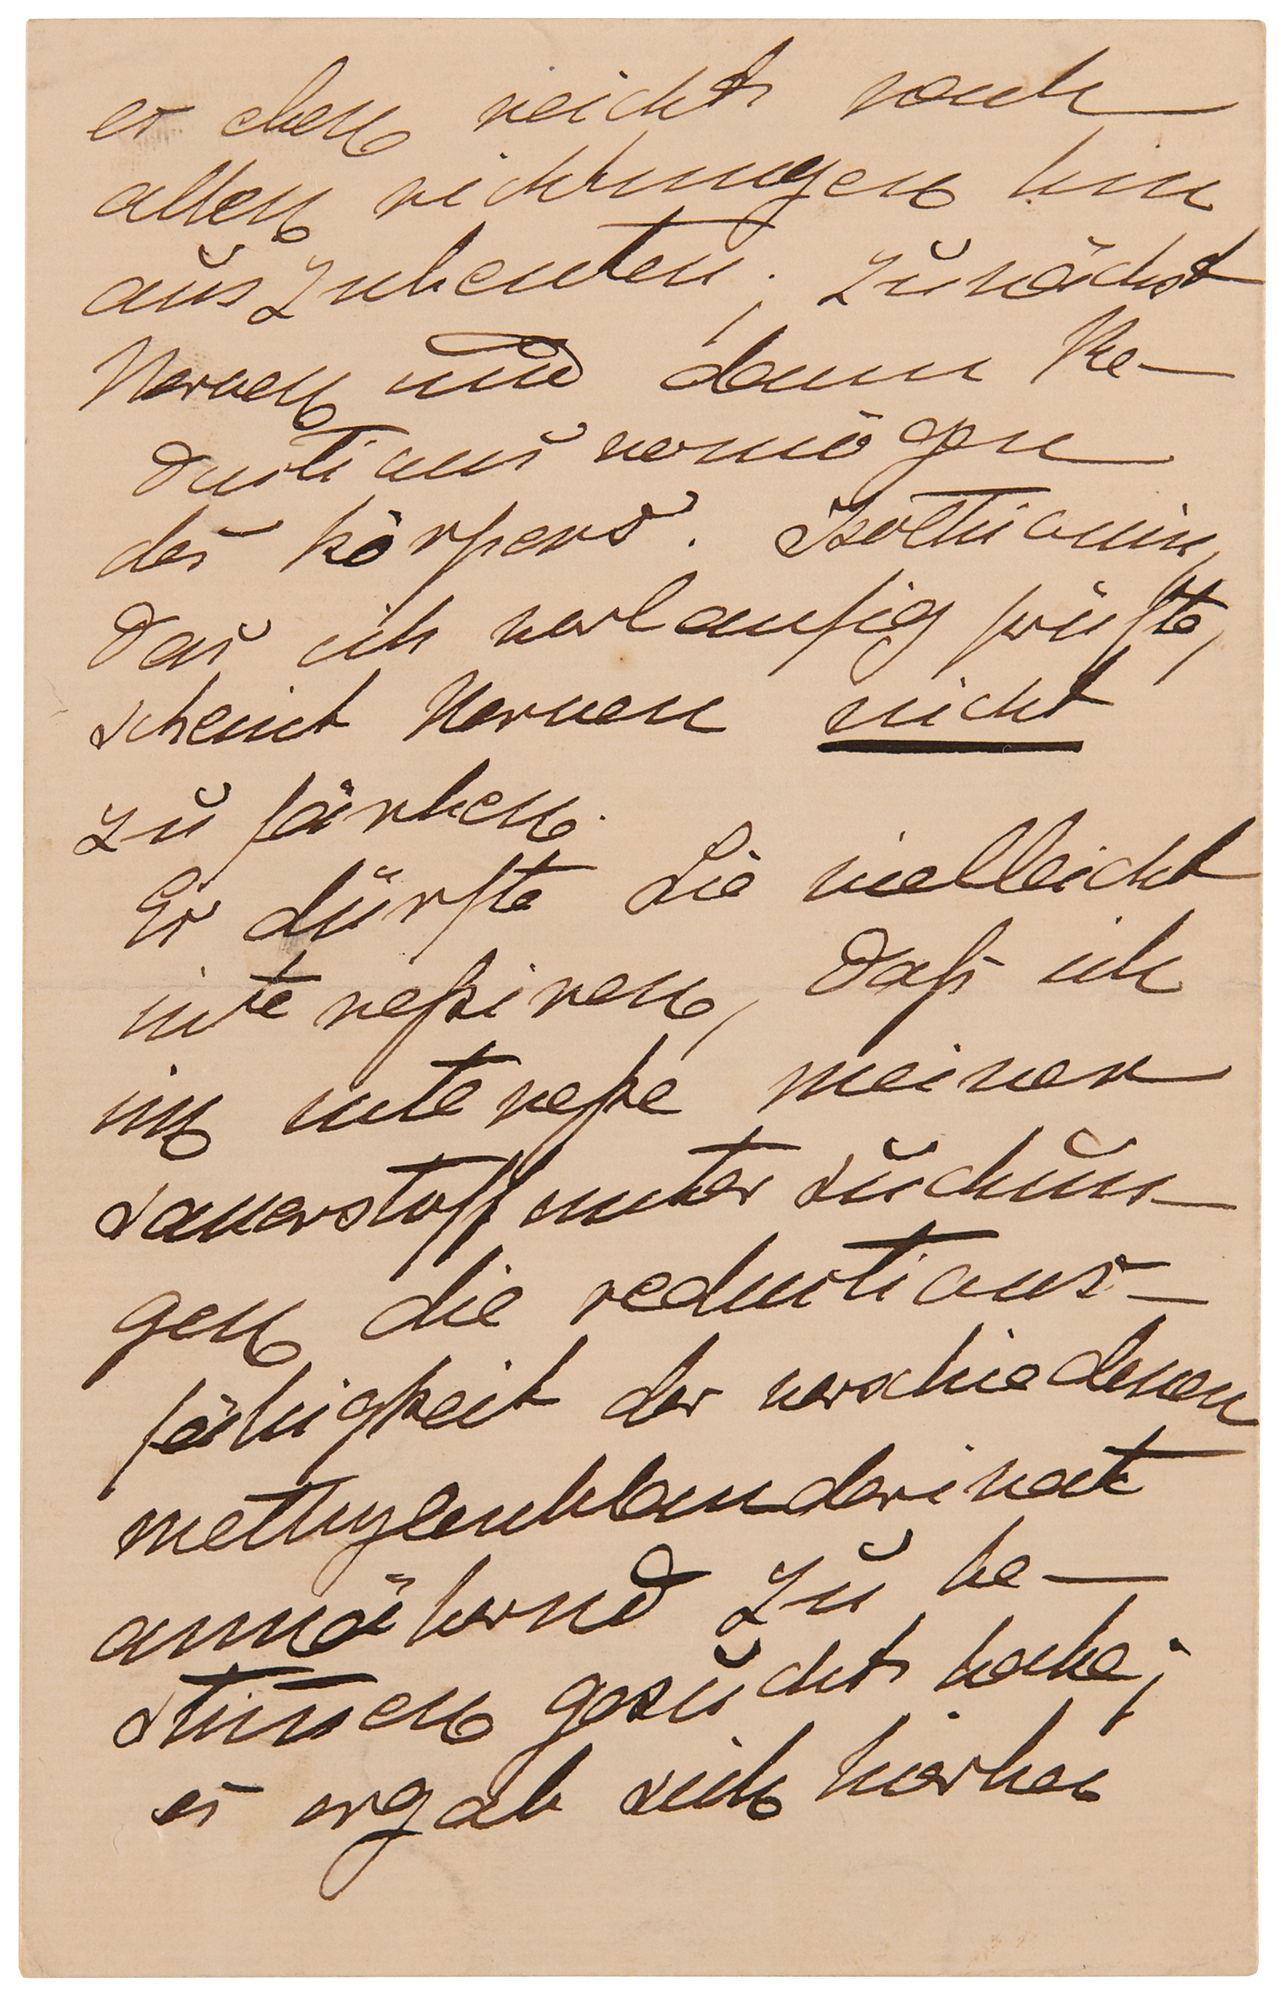 es eben reichts nach
allen richtungen hin
auszubeuten; zunächst
Nerven und dann Re-
ductionsvermögen
des körpers. Isothionin,
das ich vorlaufig prüfte,
scheint Nerven nicht
zu färben.
Er dürfte Sie vielleicht
intereßiren, daß ich
im intereße meiner
sauerstoffuntersuchun-
gen die reductions-
fähigkeit der verschiedenen
methylenblauderivate
annähernd zu be-
stimen gesucht habe;
es ergab sich hierbei